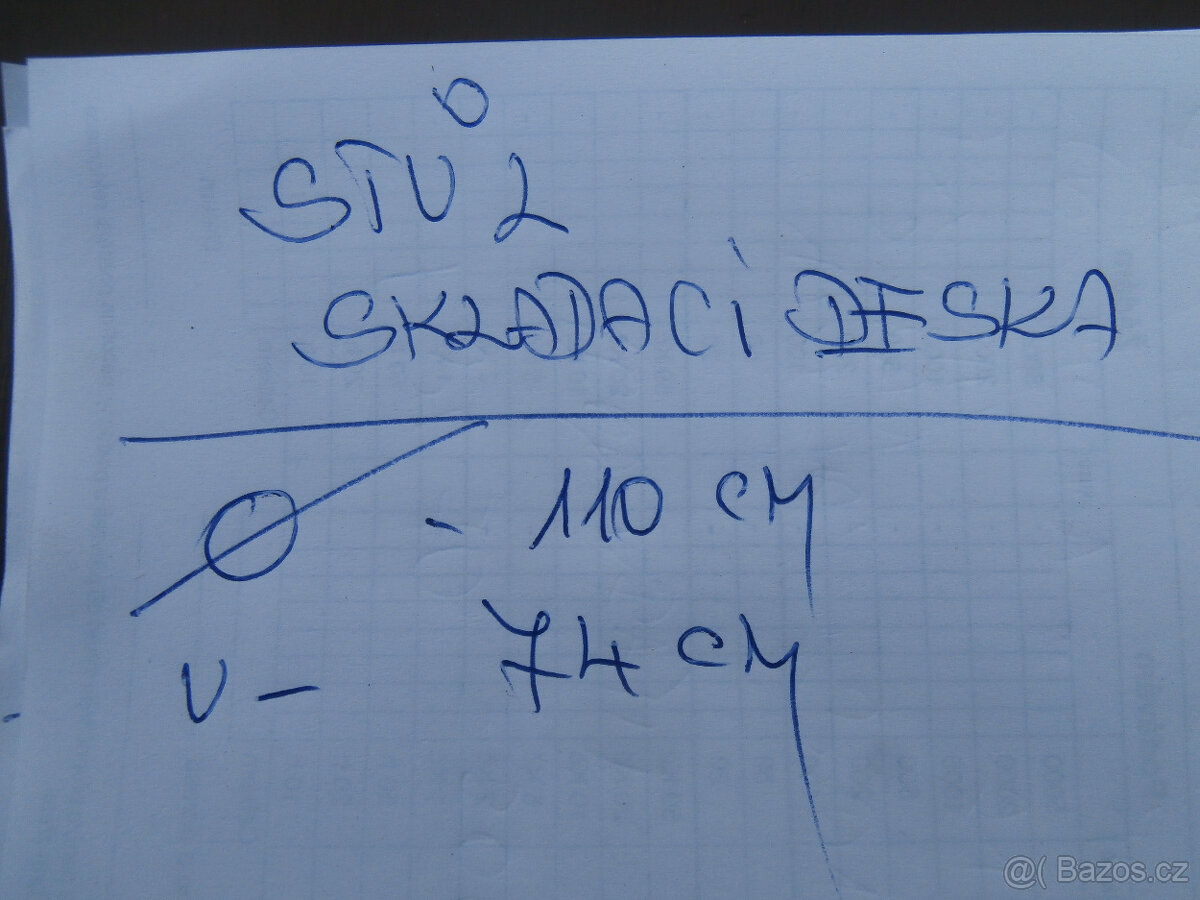 STŮL
SKLADACÍ DESKA
Ø - 110 CM
V - 74 CM
@( Bazos.cz